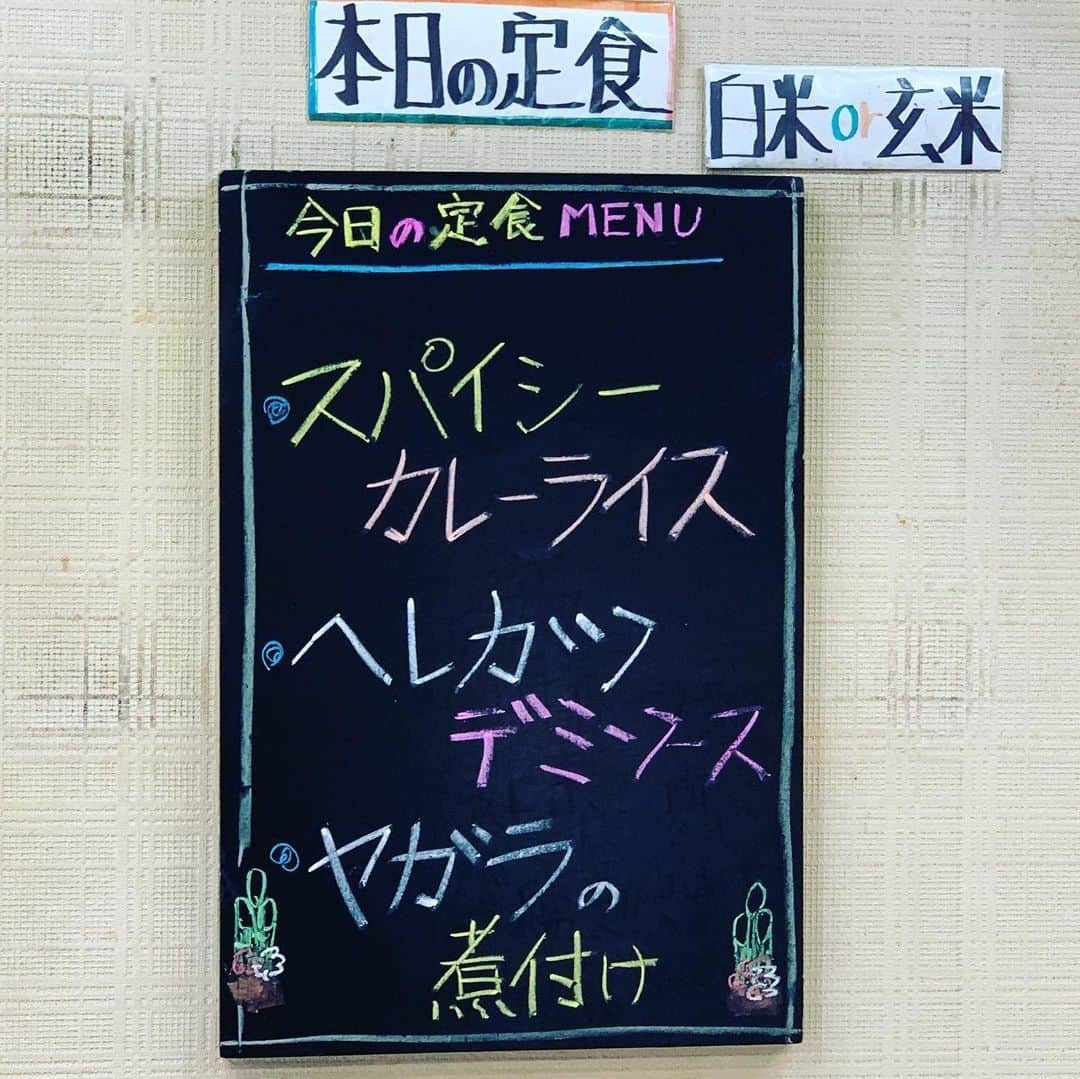 本日の定食
白米or玄米
今日の定食MENU
スパイシー
カレーライス
ヘレカツ
デミソース
ヤガラの
煮付け